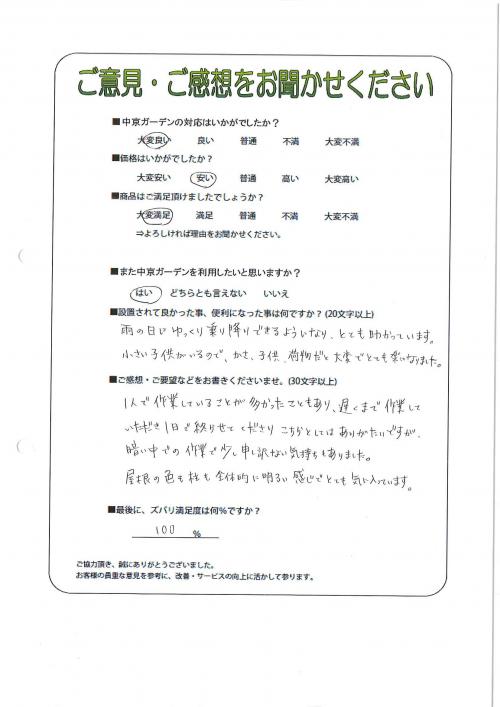 ご意見・ご感想をお聞かせください
■中京ガーデンの対応はいかがでしたか？
大変良い 良い 普通 不満 大変不満
■価格はいかがでしたか？
大変安い 安い 普通 高い 大変高い
■商品はご満足頂けましたでしょうか？
大変満足 満足 普通 不満 大変不満
⇒よろしければ理由をお聞かせください。
■また中京ガーデンを利用したいと思いますか？
はい どちらとも言えない いいえ
■設置されて良かった事、便利になった事は何ですか？(20文字以上)
雨の日にゆっくり乗り降りできるようになり、とても助かっています。
小さい子供がいるので、かさ、子供、荷物だと大変でとても楽になりました。
■ご感想・ご要望などをお書きくださいませ。(30文字以上)
1人で作業していることが多かったこともあり、遅くまで作業して
いただき1日で終らせてくださり こちらとしてはありがたいですが、
暗い中での作業で少し申し訳ない気持ちもありました。
屋根の色も柱も全体的に明るい感じでとても気に入っています。
■最後に、ズバリ満足度は何％ですか？
100 ％
ご協力頂き、誠にありがとうございました。
お客様の貴重な意見を参考に、改善・サービスの向上に活かして参ります。